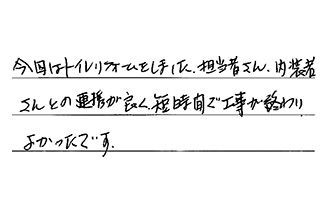 今回はトイレリフォームをしました。担当者さん、内装者
さんとの連携が良く、短時間で工事が終わり
よかったです。